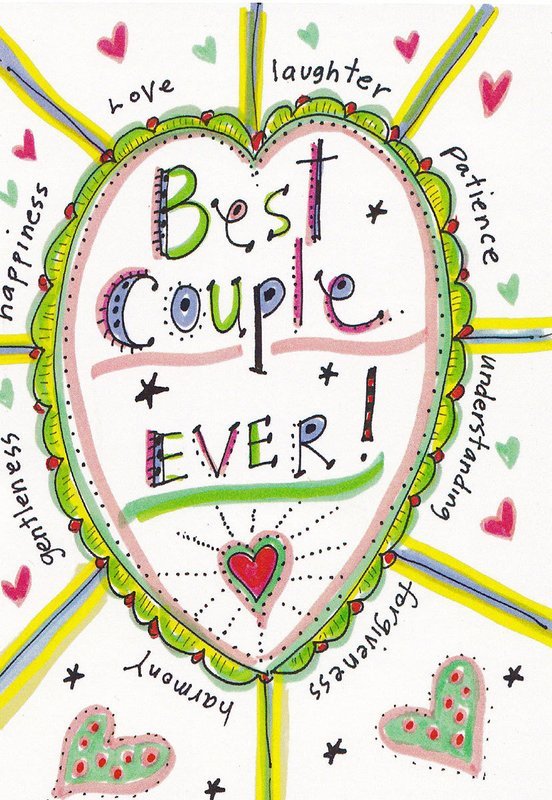 Love
laughter
patience
understanding
forgiveness
harmony
gentleness
happiness
Best
Couple
EVER!